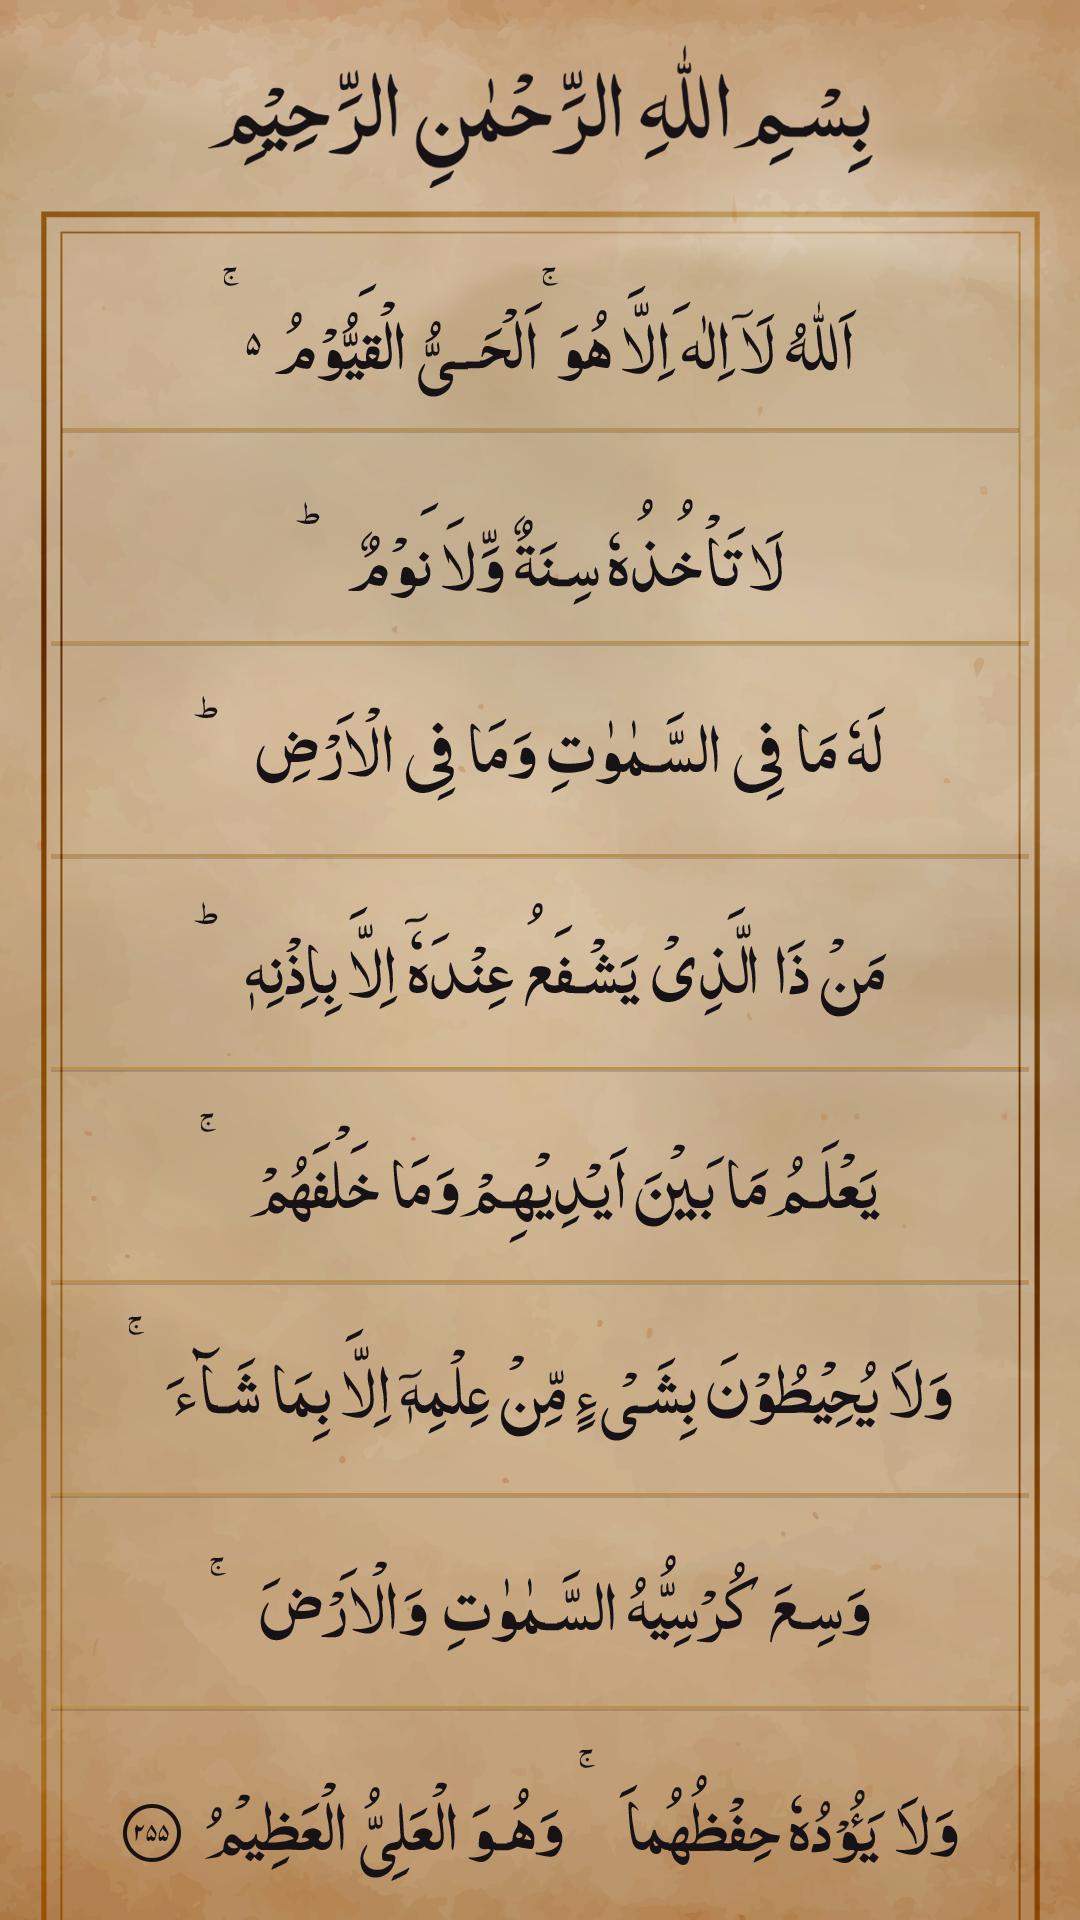 بِسْمِ اللهِ الرَّحْمٰنِ الرَّحِيْمِ
اَللهُ لَآ اِلٰهَ اِلَّا هُوَ ۚ اَلْحَـىُّ الْقَيُّوْمُ ۚ ۵
لَا تَاْخُذُهٗ سِنَةٌ وَّلَا نَوْمٌ ؕ
لَهٗ مَا فِى السَّمٰوٰتِ وَمَا فِى الْاَرْضِ ؕ
مَنْ ذَا الَّذِىْ يَشْفَعُ عِنْدَهٗۤ اِلَّا بِاِذْنِهٖ ؕ
يَعْلَمُ مَا بَيْنَ اَيْدِيْهِمْ وَمَا خَلْفَهُمْ ۚ
وَلَا يُحِيْطُوْنَ بِشَىْءٍ مِّنْ عِلْمِهٖۤ اِلَّا بِمَا شَآءَ ۚ
وَسِعَ كُرْسِيُّهُ السَّمٰوٰتِ وَالْاَرْضَ ۚ
وَلَا يَـُٔوْدُهٗ حِفْظُهُمَا ۚ وَهُوَ الْعَلِىُّ الْعَظِيْمُ ۲۵۵